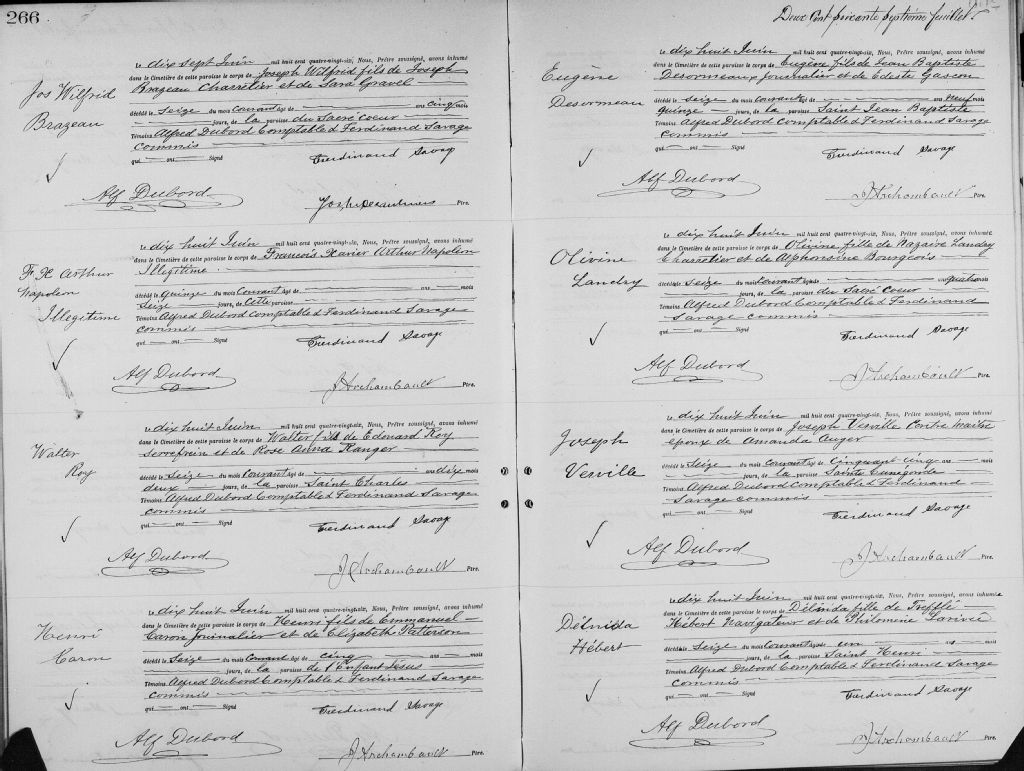 266
Jos Wilfrid
Brazeau
Le dix sept Juin mil huit cent quatre-vingt-six, Nous, Prêtre soussigné, avons inhumé
dans le Cimetière de cette paroisse le corps de Joseph Wilfrid fils de Joseph
Brazeau Charretier et de Sara Gravel
décédé le Seize du mois courant âgé de — ans cinq mois
— jours, de la paroisse du Sacré Coeur
Témoins Alfred Dubord Comptable & Ferdinand Savage
commis
qui — ont — Signé
Ferdinand Savage
Alf Dubord
Ptre.
F. X Arthur
Napoleon
Illegitime
Le dix huit Juin mil huit cent quatre-vingt-six, Nous, Prêtre soussigné, avons inhumé
dans le Cimetière de cette paroisse le corps de Francois Xavier Arthur Napoleon
Illegitime
décédé le Quinze du mois Courant âgé de — ans — mois
Seize jours, de Cette paroisse
Témoins Alfred Dubord Comptable & Ferdinand Savage
commis
qui — ont — Signé
Ferdinand Savage
Alf Dubord
J Archambault Ptre.
Walter
Roy
Le dix huit Juin mil huit cent quatre-vingt-six, Nous, Prêtre soussigné, avons inhumé
dans le Cimetière de cette paroisse le corps de Walter fils de Edouard Roy
Serrefrein et de Rose Anna Ranger
décédé le Seize du mois Courant âgé de — ans dix mois
deux jours, de la paroisse Saint Charles
Témoins Alfred Dubord Comptable & Ferdinand Savage
commis
qui — ont — Signé
Ferdinand Savage
Alf Dubord
J Archambault Ptre.
Henri
Caron
Le dix huit Juin mil huit cent quatre-vingt-six, Nous, Prêtre soussigné, avons inhumé
dans le Cimetière de cette paroisse le corps de Henri fils de Emmanuel
Caron Journalier et de Elizabeth Patterson
décédé le Seize du mois Courant âgé de cinq ans — mois
— jours, de la paroisse de l'Enfant Jésus
Témoins Alfred Dubord Comptable & Ferdinand Savage
commis
qui — ont — Signé
Ferdinand Savage
Alf Dubord
J Archambault Ptre.
Deux Cent soixante septième feuillet
Eugène
Desormeau
Le dix huit Juin mil huit cent quatre-vingt-six, Nous, Prêtre soussigné, avons inhumé
dans le Cimetière de cette paroisse le corps de Eugène fils de Jean Baptiste
Desormeaux Journalier et de Edeste Gascon
décédé le seize du mois courant âgé de — ans neuf mois
quinze jours, de la paroisse Saint Jean Baptiste
Témoins Alfred Dubord Comptable & Ferdinand Savage
commis
qui — ont — Signé
Ferdinand Savage
Alf Dubord
J Archambault Ptre.
Olivine
Landry
Le dix huit Juin mil huit cent quatre-vingt-six, Nous, Prêtre soussigné, avons inhumé
dans le Cimetière de cette paroisse le corps de Olivine fille de Nazaire Landry
Charretier et de Alphonsine Bourgeois
décédée le Seize du mois Courant âgée de — ans quatre mois
— jours, de la paroisse du Sacré Coeur
Témoins Alfred Dubord Comptable & Ferdinand
Savage commis
qui — ont — Signé
Ferdinand Savage
Alf Dubord
J Archambault Ptre.
Joseph
Verville
Le dix huit Juin mil huit cent quatre-vingt-six, Nous, Prêtre soussigné, avons inhumé
dans le Cimetière de cette paroisse le corps de Joseph Verville Contre maitre
epoux de Amanda Auger
décédé le Seize du mois Courant âgé de Cinquante cinq ans — mois
— jours, de la paroisse Sainte Cunégonde
Témoins Alfred Dubord Comptable & Ferdinand
Savage commis
qui — ont — Signé
Ferdinand Savage
Alf Dubord
J Archambault Ptre.
Délnida
Hébert
Le dix huit Juin mil huit cent quatre-vingt-six, Nous, Prêtre soussigné, avons inhumé
dans le Cimetière de cette paroisse le corps de Délinida fille de Trefflé
Hébert Navigateur et de Philomene Larivée
décédée le Seize du mois Courant âgée de un an — mois
— jours, de la paroisse Saint Henri
Témoins Alfred Dubord Comptable & Ferdinand Savage
commis
qui — ont — Signé
Ferdinand Savage
Alf Dubord
J Archambault Ptre.